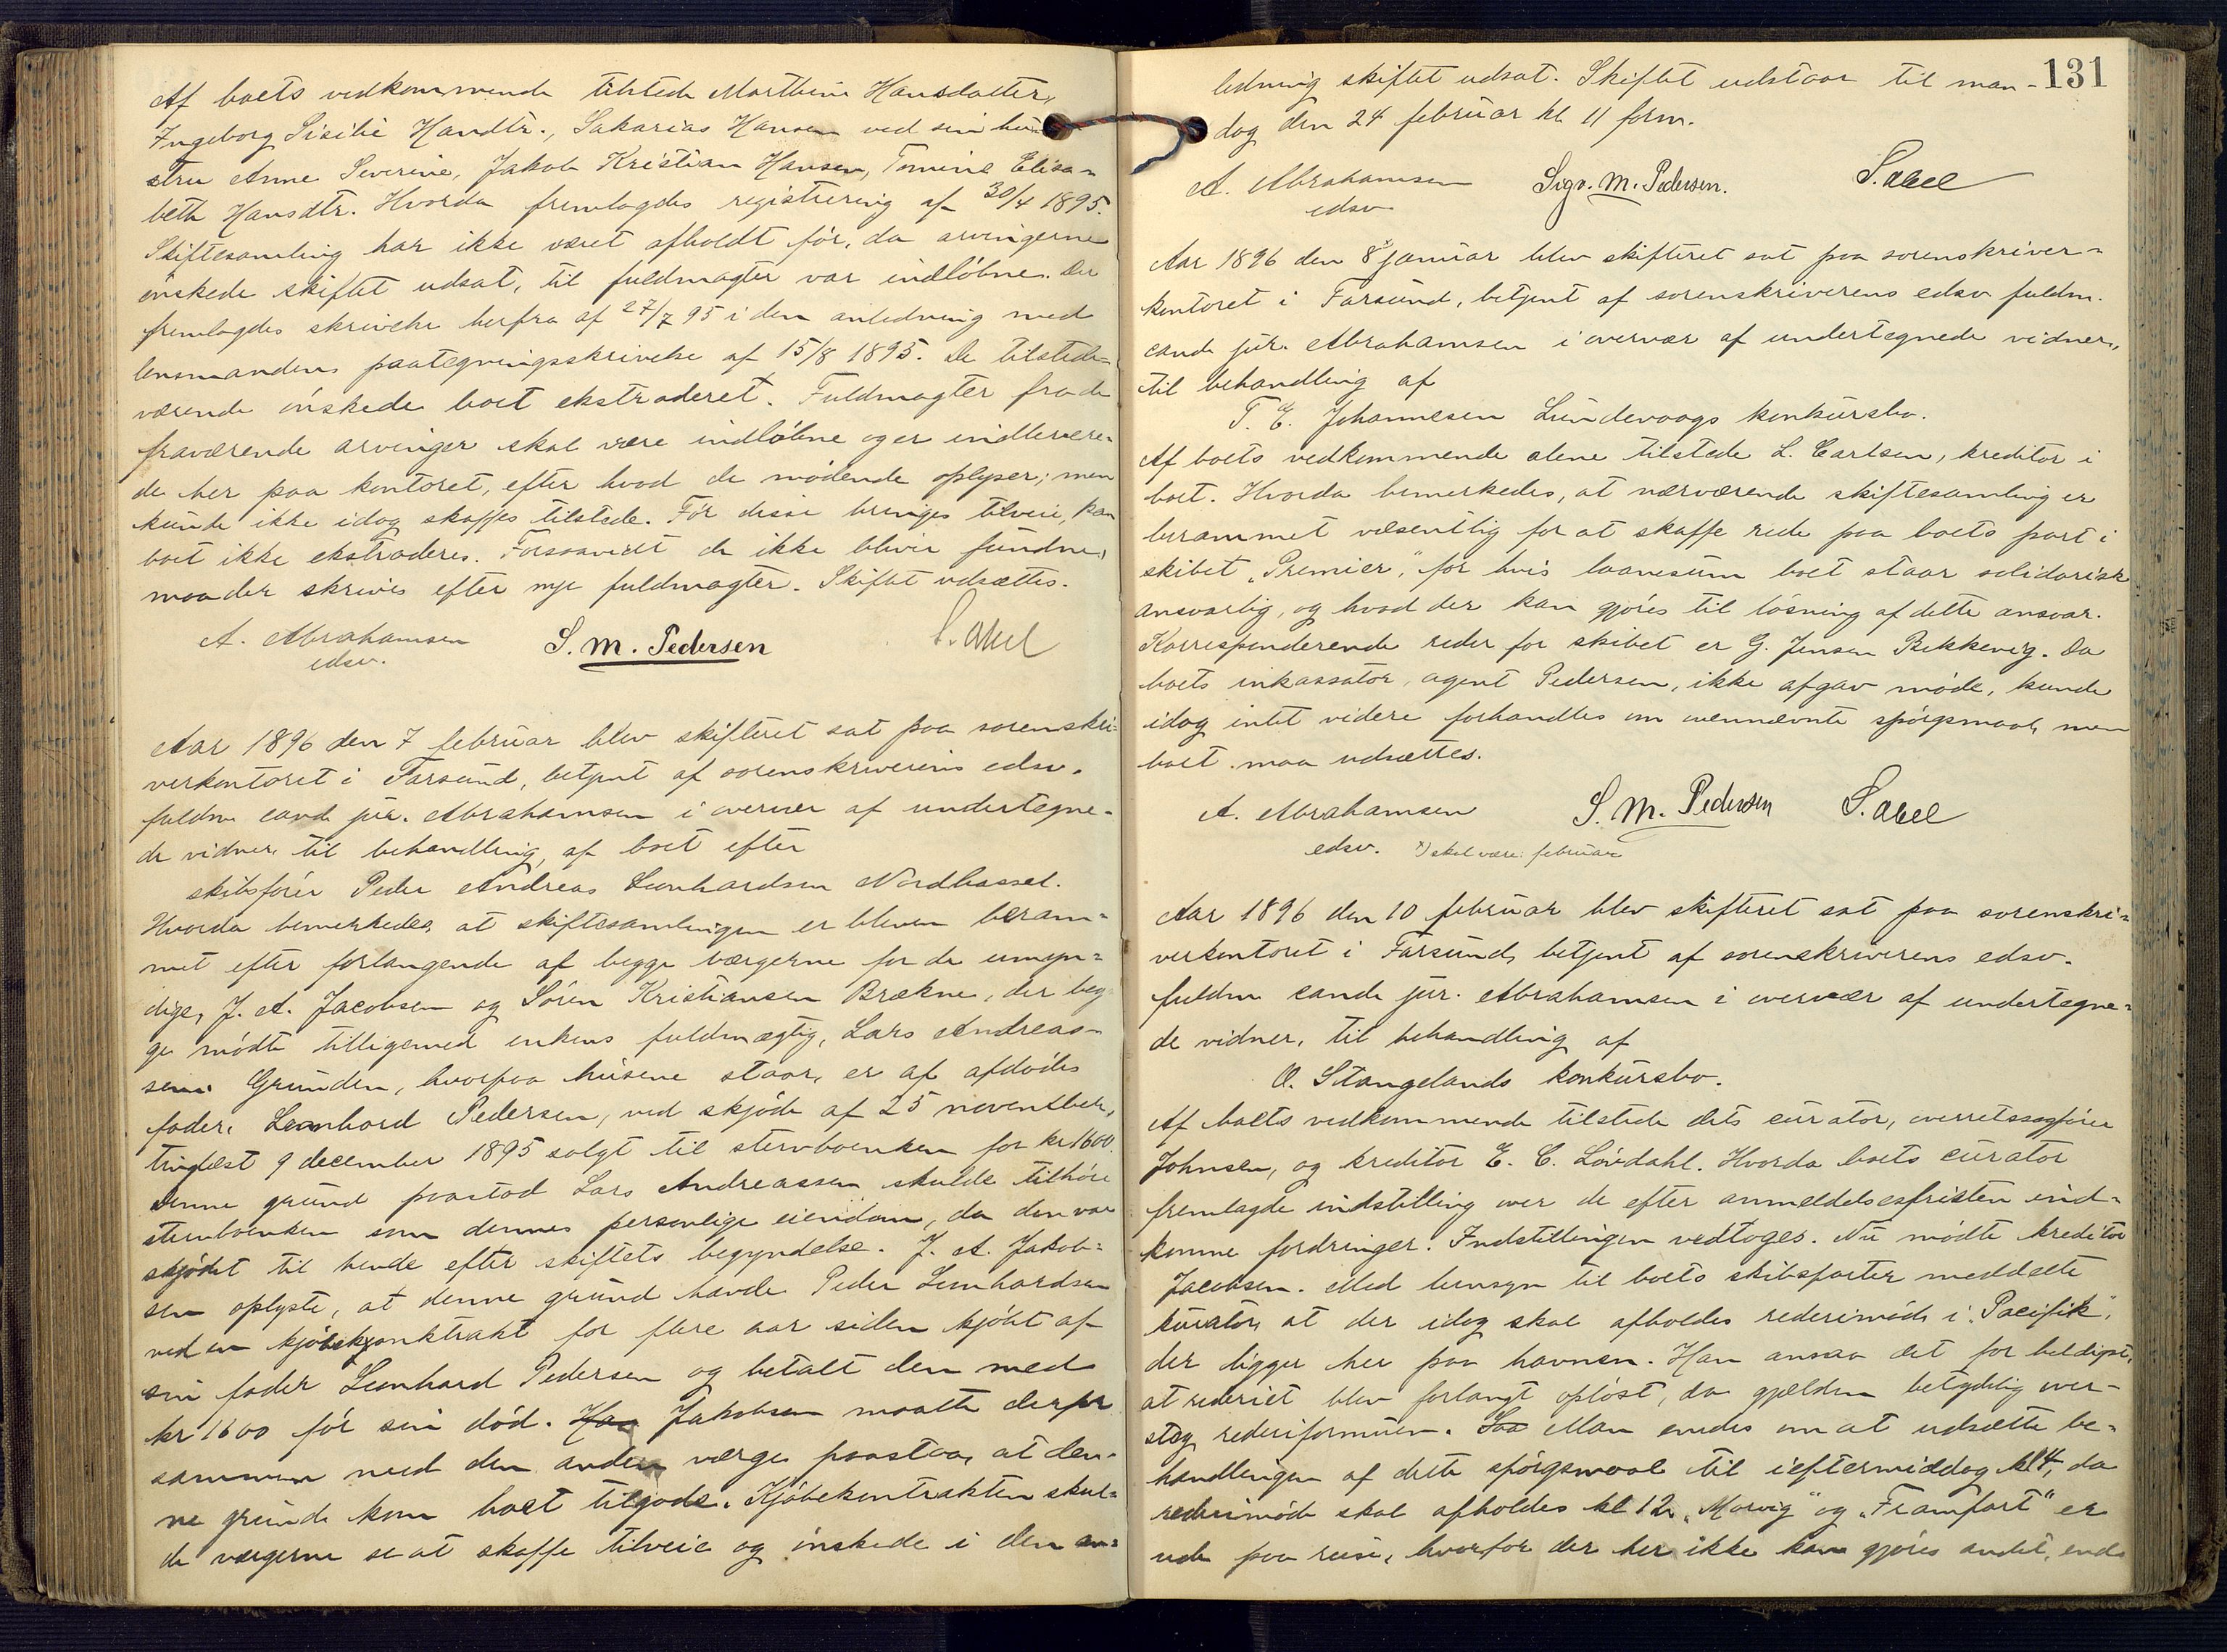 Af boets vedkommende tilstede Marthine Hansdatter,
Ingeborg Sisilie Handtr., Sakarias Hansen ved sin hu-
stru Anne Severine, Jakob Kristian Hansen, Tomine Elisa-
beth Hansdtr. Hvorda fremlagdes registrering af 30/4 1895.
Skiftesamling har ikke været afholdt før, da arvingerne
ønskede skiftet udsat, til fuldmagter var indløbne. Der
fremlagdes skrivelse herfra af 27/7 95 i den anledning med
lensmandens paategningsskrivelse af 15/8 1895. De tilstede-
værende ønskede boet ekstraderet. Fuldmagter fra de
fraværende arvinger skal være indløbne og er indlevere-
de her paa kontoret, efter hvad de mødende oplyser; men
kunde ikke idag skaffes tilstede. Før disse bringes tilveie, kan
boet ikke ekstraderes. Forsaavidt de ikke bliver fundne,
maa der skrives efter nye fuldmagter. Skiftet udsættes.
A. Abrahamsen S. M. Pedersen S. Abel
edsv.
Aar 1896 den 7 februar blev skifteret sat paa sorenskri-
verkontoret i Farsund, betjent af sorenskriverens edsv.
fuldm. cand. jur. Abrahamsen i overvær af undertegne-
de vidner, til behandling af boet efter
skibsfører Peder Andreas Leonhardsen Nordhassel.
Hvorda bemerkedes, at skiftesamlingen er bleven beram-
met efter forlangende af begge værgerne for de umyn-
dige, J. A. Jacobsen og Søren Kristiansen Brækne, der beg-
ge mødte tilligemed enkens fuldmægtig, Lars Andreas-
sen. Grunden, hvorpaa husene staar, er af afdødes
fader, Leonhard Pedersen, ved skjøde af 25 november,
tinglæst 9 december 1895 solgt til stervboenken for kr 1600.
Denne grund paastod Lars Andreassen skulde tilhøre
stervboenken som dennes personlige eiendom, da den var
skjødet til hende efter skiftets begyndelse. J. A. Jakob-
sen oplyste, at denne grund havde Peder Leonhardsen
ved en kjøbekontrakt for flere aar siden kjøbt af
sin fader Leonhard Pedersen og betalt den med
kr 1600 før sin død. Han Jakobsen maatte derfor
sammen med den anden værge paastaa, at den-
ne grund kom boet tilgode. Kjøbekontrakten skul-
de værgerne se at skaffe tilveie og ønskede i den an-
131
ledning skiftet udsat. Skiftet udstaar til man-
dag den 24 februar kl 11 form.
A. Abrahamsen Sigv. M. Pedersen. S. Abel
edsv
Aar 1896 den 8 x) januar blev skifteret sat paa sorenskriver-
kontoret i Farsund, betjent af sorenskriverens edsv. fuldm.
cand. jur. Abrahamsen i overvær af undertegnede vidner,
til behandling af
T. E. Johannesen Lundevaags konkursbo.
Af boets vedkommende alene tilstede L. Carlsen, kreditor i
boet. Hvorda bemerkedes, at nærværende skiftesamling er
berammet væsentlig for at skaffe rede paa boets part i
skibet „Premier", for hvis laanesum boet staar solidarisk
ansvarlig, og hvad der kan gjøres til løsning af dette ansvar.
Korresponderende reder for skibet er G. Jensen Bekkevig. Da
boets inkassator, agent Pedersen, ikke afgav møde, kunde
idag intet videre forhandles om ovennævnte spørgsmaal, men
boet maa udsættes.
A. Abrahamsen S. M. Pedersen S. Abel
edsv. x) skal være: februar
Aar 1896 den 10 februar blev skifteret sat paa sorenskri-
verkontoret i Farsund, betjent af sorenskriverens edsv.
fuldm cand. jur. Abrahamsen i overvær af undertegne-
de vidner, til behandling af
O. Stangelands konkursbo.
Af boets vedkommende tilstede dets curator, overretssagfører
Johnsen, og kreditor E. C. Løvdahl. Hvorda boets curator
fremlagde indstilling over de efter anmeldelsesfristen ind-
komne fordringer. Indstillingen vedtoges. Nu mødte kreditor
Jacobsen. Med hensyn til boets skibsparter meddelte
kurator, at der idag skal afholdes rederimøde i „Pacifik",
der ligger her paa havnen. Han ansaa det for heldigst,
at rederiet blev forlangt opløst, da gjælden betydelig over-
steg rederiformuen. Saa Man enedes om at udsætte be-
handlingen af dette spørgsmaal til ieftermiddag kl 4, da
rederimøde skal afholdes kl 12. „Morvig" og „Framfart" er
ude paa reise, hvorfor der her ikke kan gjøres andet, end